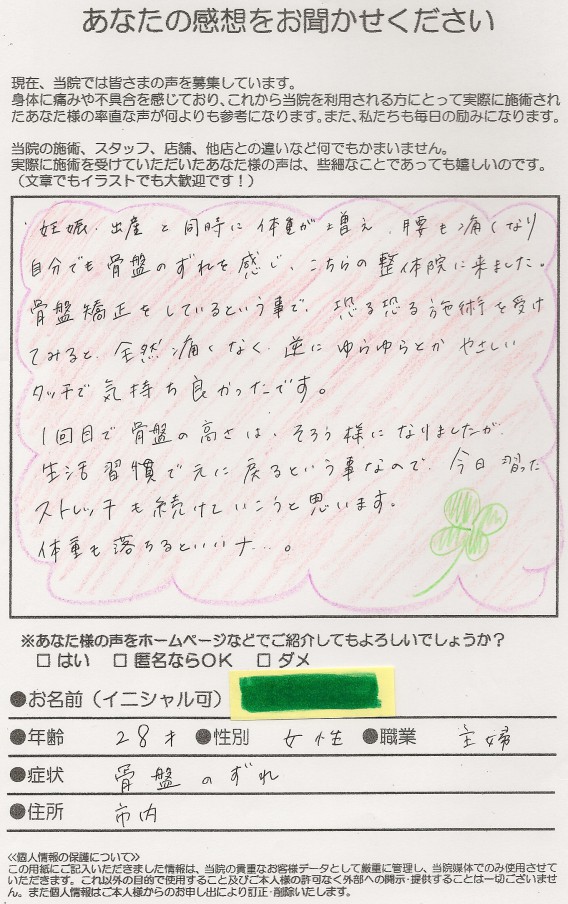 あなたの感想をお聞かせください
現在、当院では皆さまの声を募集しています。
身体に痛みや不具合を感じており、これから当院を利用される方にとって実際に施術され
たあなた様の率直な声が何よりも参考になります。また、私たちも毎日の励みになります。
当院の施術、スタッフ、店舗、他店との違いなど何でもかまいません。
実際に施術を受けていただいたあなた様の声は、些細なことであっても嬉しいのです。
（文章でもイラストでも大歓迎です！）
妊娠、出産と同時に体重が増え、腰も痛くなり
自分でも骨盤のずれを感じ、こちらの整体院に来ました。
骨盤矯正をしているという事で、恐る恐る施術を受け
てみると、全然痛くなく、逆にゆらゆらとかやさしい
タッチで気持ち良かったです。
1回目で骨盤の高さは、そろう様になりましたが、
生活習慣で元に戻るという事なので、今日習った
ストレッチも続けていこうと思います。
体重も落ちるといいナ…。
※あなた様の声をホームページなどでご紹介してもよろしいでしょうか？
□ はい □ 匿名ならOK □ ダメ
●お名前（イニシャル可）
●年齢 28才 ●性別 女性 ●職業 主婦
●症状 骨盤のずれ
●住所 市内
≪個人情報の保護について≫
この用紙にご記入いただきました情報は、当院の貴重なお客様データとして厳重に管理し、当院媒体でのみ使用させて
いただきます。これ以外の目的で使用すること及びご本人様の許可なく外部への開示・提供することは一切ございませ
ん。また個人情報はご本人様からのお申し出により訂正・削除いたします。